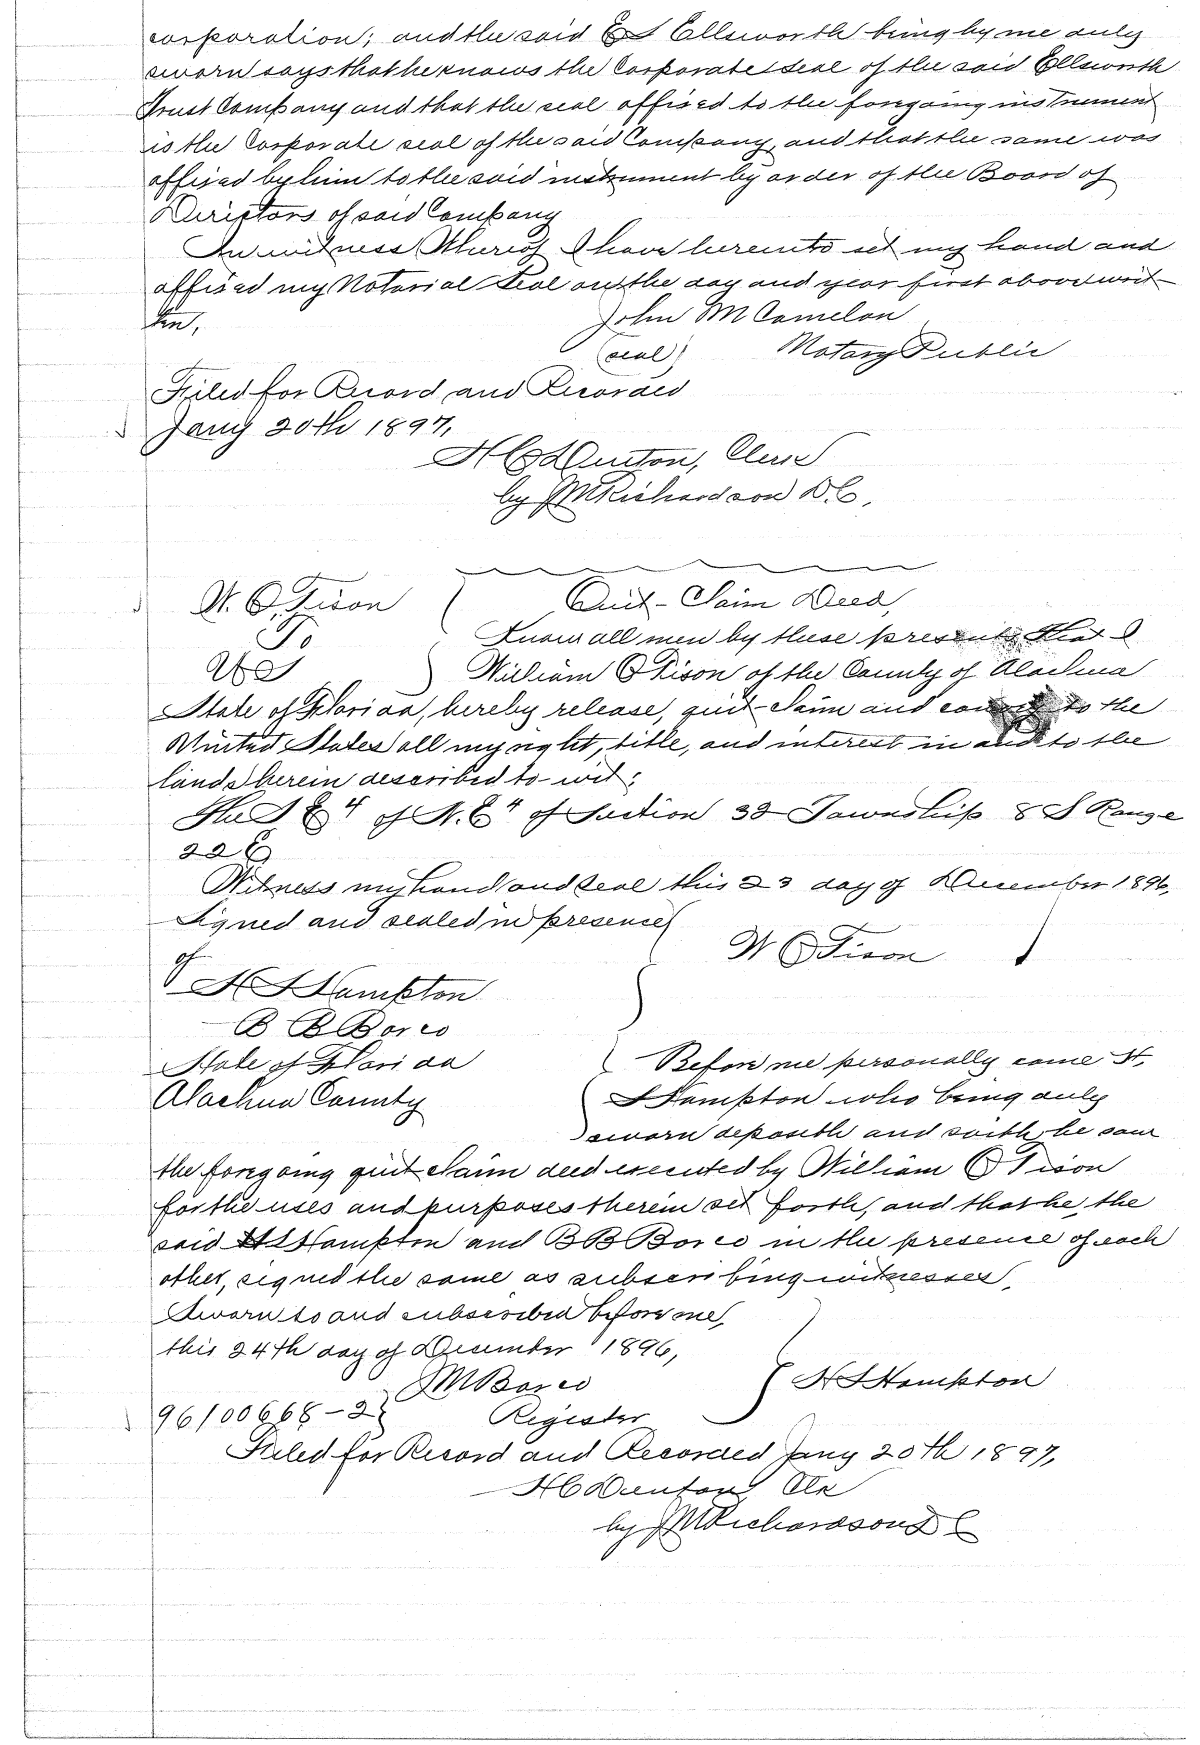 corporation; and the said E S Ellsworth being by me duly
sworn says that he knows the Corporate Seal of the said Ellsworth
Trust Company and that the seal affixed to the foregoing instrument
is the Corporate seal of the said Company, and that the same was
affixed by him to the said instrument by order of the Board of
Directors of said Company
In witness Whereof I have hereunto set my hand and
affixed my Notarial Seal on the day and year first above writ-
ten,
John M Camelon
(seal) Notary Public
Filed for Record and Recorded
Jany 20th 1897,
H C Denton, Clerk
by J M Richardson D.C.
W. O. Tison
To
U S
Quit-Claim Deed,
Know all men by these presents that I
William O Tison of the County of Alachua
State of Florida, hereby release, quit-claim and convey to the
United States all my right, title, and interest in and to the
lands herein described to-wit:
The S E 4 of N. E 4 of Section 32 Township 8 S Range
22 E
Witness my hand and seal this 23 day of December 1896,
Signed and sealed in presence
of
W O Tison
H S Hampton
B B Boreo
State of Florida
Alachua County
Before me personally came H.
S Hampton who being duly
sworn deposeth and saith he saw
the foregoing quit claim deed executed by William O Tison
for the uses and purposes therein set forth, and that he, the
said H S Hampton and B B Boreo in the presence of each
other, signed the same as subscribing witnesses,
Sworn to and subscribed before me,
this 24th day of December 1896,
J M Boreo
H S Hampton
96/00668-2
Register
Filed for Record and Recorded Jany 20th 1897,
H C Denton Clk
by J M Richardson D C